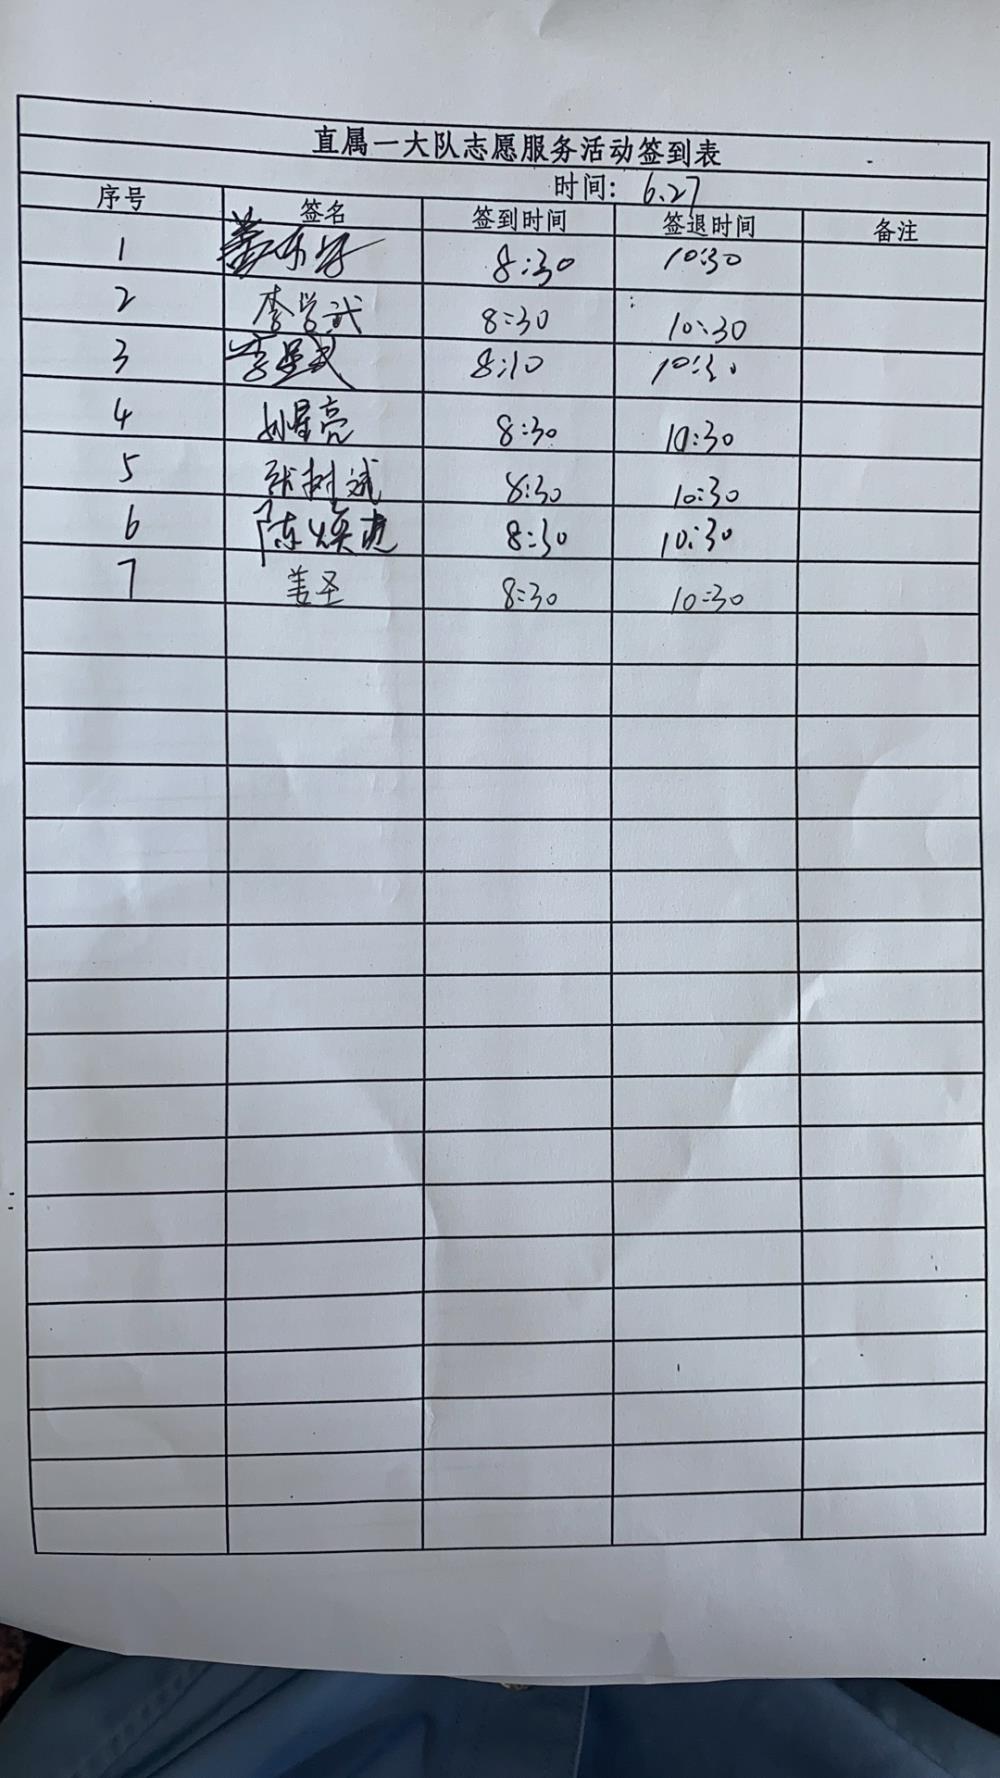 直属一大队志愿服务活动签到表
时间: 6.27
序号 签名 签到时间 签退时间 备注
1 8:30 10:30
2 李学武 8:30 10:30
3 8:10 10:30
4 刘星亮 8:30 10:30
5 张树斌 8:30 10:30
6 陈焕 8:30 10:30
7 姜圣 8:30 10:30